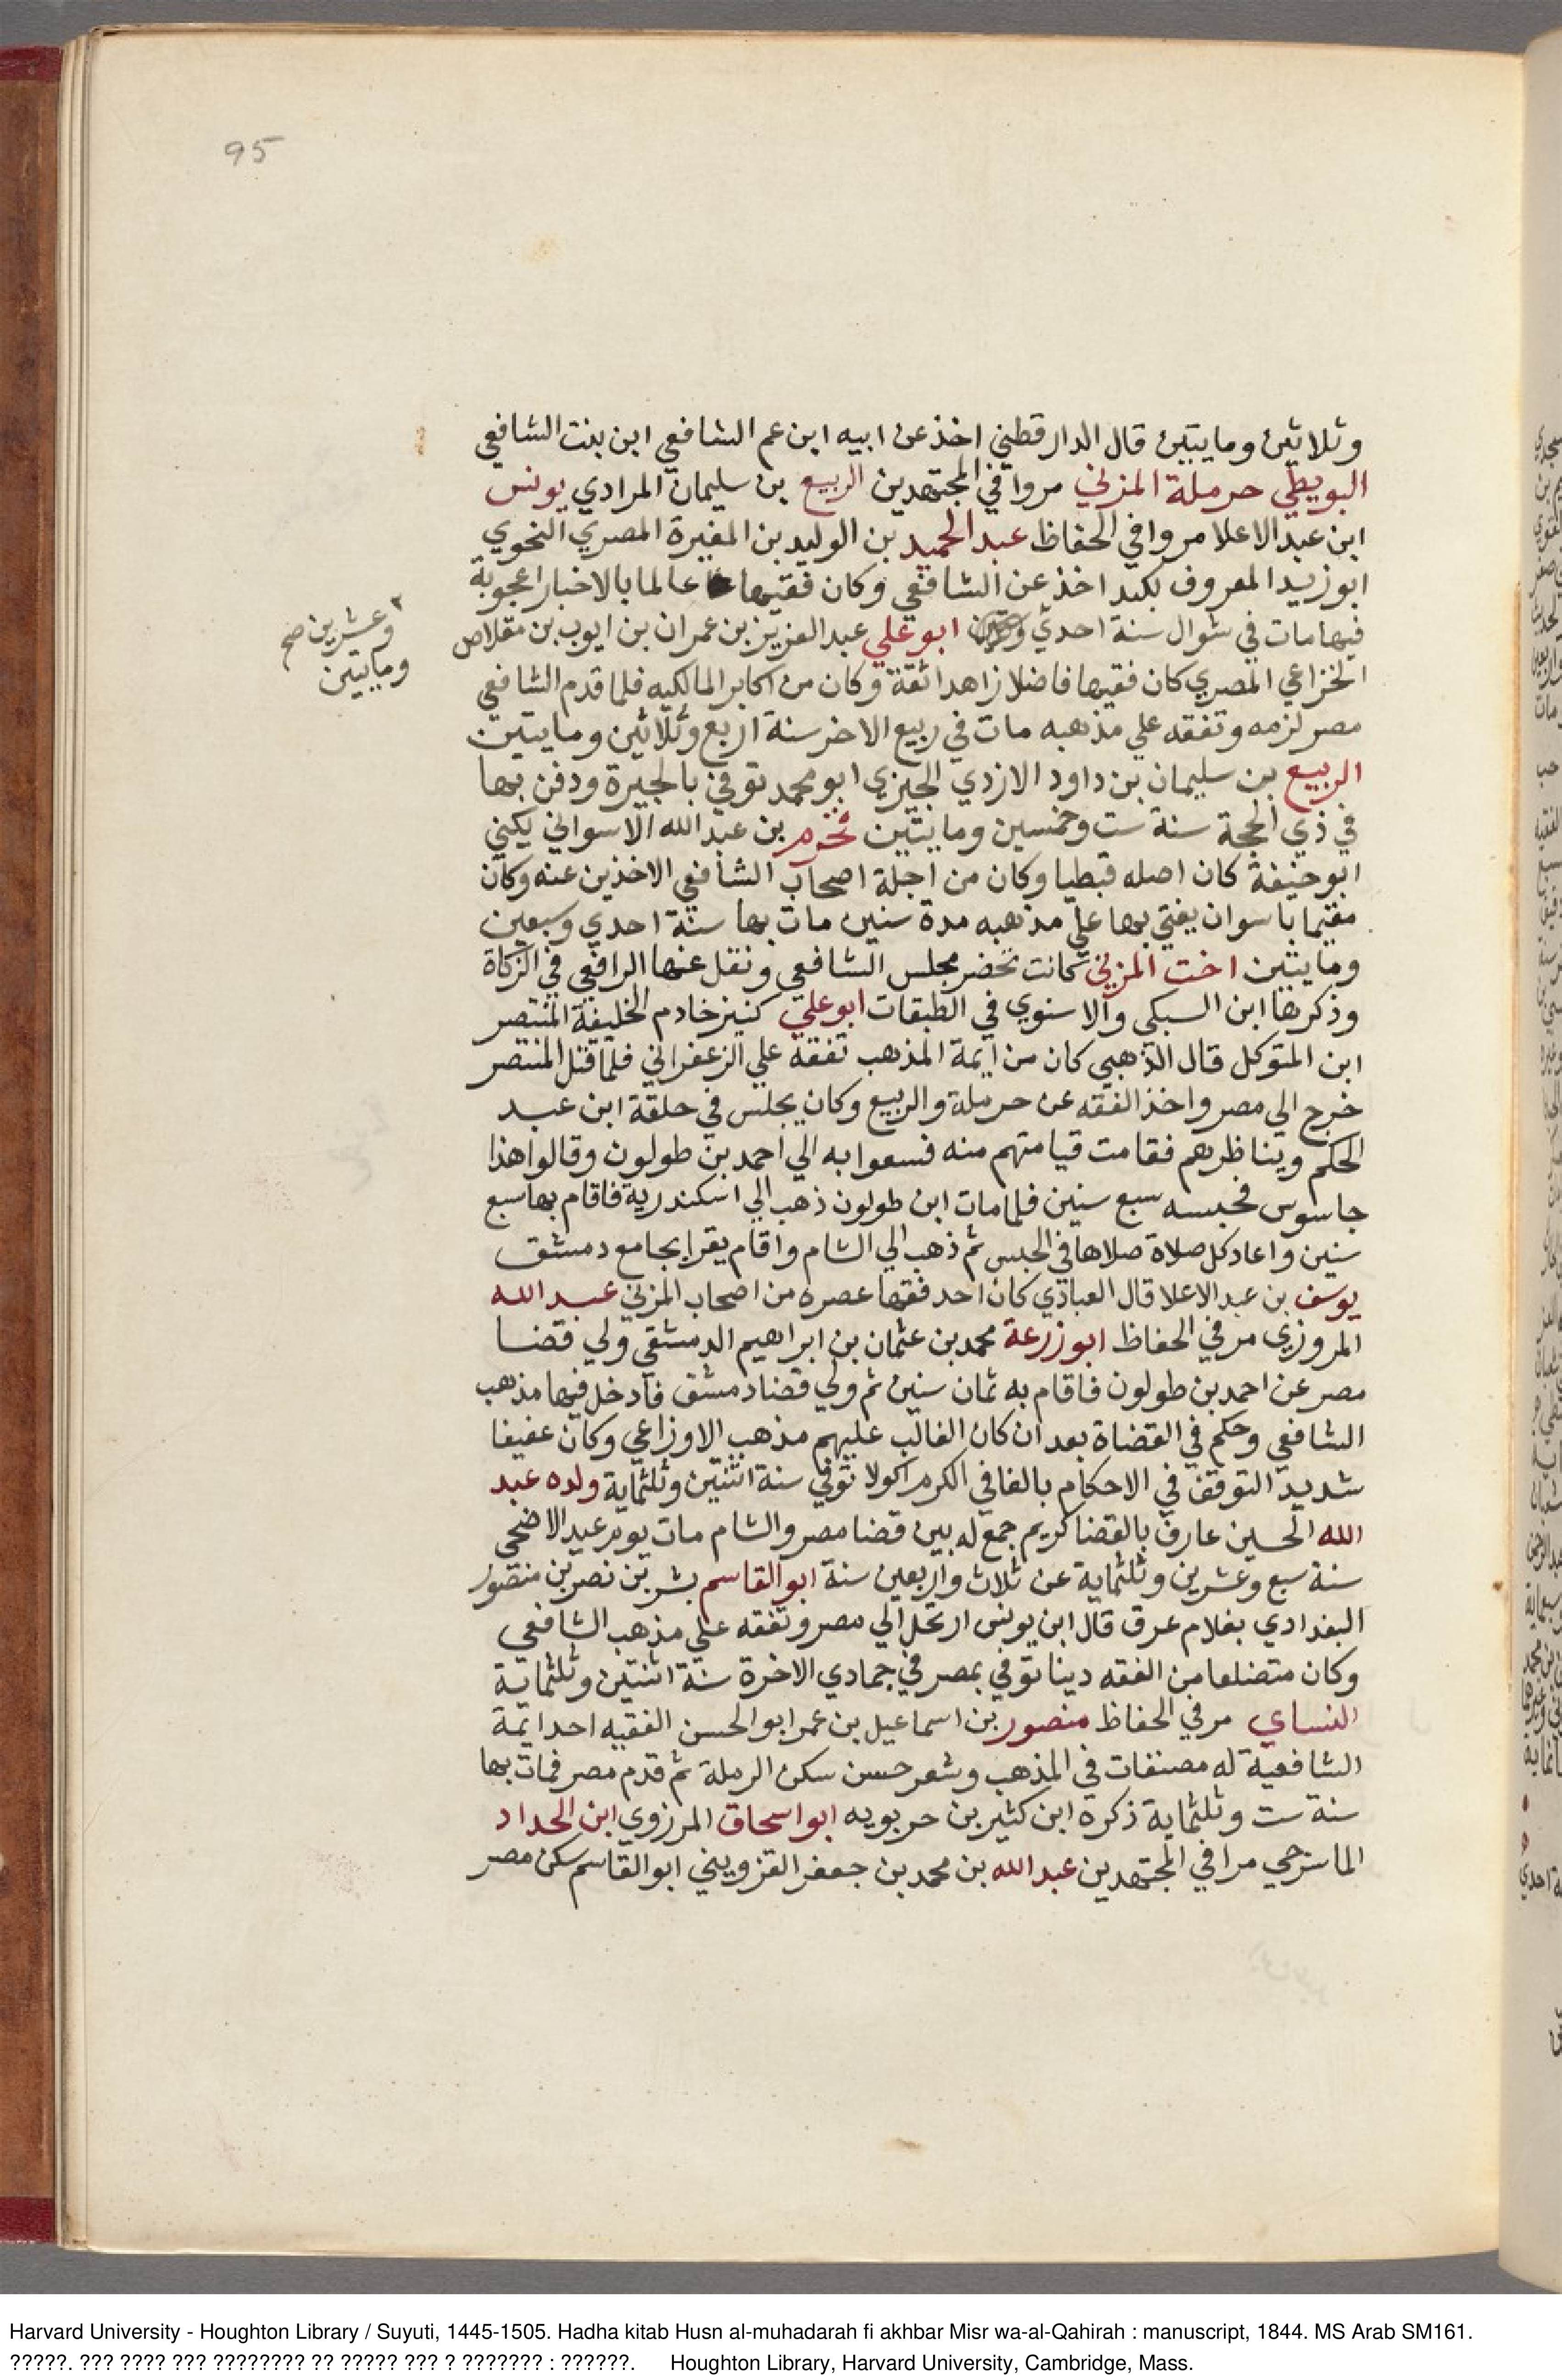 95
وثلاثين ومايتين قال الدارقطني اخذ عن ابيه ابن عم الشافعي ابن بنت الشافعي
البويطي حرملة المزني مروا في المجتهدين الربيع بن سليمان المرادي يونس
ابن عبد الاعلا مروا في الحفاظ عبد الحميد بن الوليد بن المغيرة المصري النحوي
ابو زيد المعروف بكبد اخذ عن الشافعي وكان فقيها عالما بالاخبار اعجوبة
فيها مات في شوال سنة احدي ابو علي عبد العزيز بن عمران بن ايوب بن مقلاص
وعشرين صح
ومايتين
الخزاعي المصري كان فقيها فاضلا زاهدا ثقة وكان من اكابر المالكيه فلما قدم الشافعي
مصر لزمه وتفقه علي مذهبه مات في ربيع الاخر سنة اربع وثلاثين ومايتين
الربيع بن سليمان بن داود الازدي الجيزي ابو محمد توفي بالجيزة ودفن بها
في ذي الحجة سنة ست وخمسين ومايتين قحزم بن عبد الله الاسواني يكني
ابو حنيفة كان اصله قبطيا وكان من اجلة اصحاب الشافعي الاخذين عنه وكان
مقيما باسوان يفتي بها علي مذهبه مدة سنين مات بها سنة احدي وسبعين
ومايتين اخت المزني كانت تحضر مجلس الشافعي ونقل عنها الرافعي في الزكاة
وذكرها ابن السبكي والاسنوي في الطبقات ابو علي كنيز خادم الخليفة المنتصر
ابن المتوكل قال الذهبي كان من ايمة المذهب تفقه علي الزعفراني فلما قتل المنتصر
خرج الي مصر واخذ الفقه عن حرملة والربيع وكان يجلس في حلقة ابن عبد
الحكم ويناظرهم فقامت قيامتهم منه فسعوا به الي احمد بن طولون وقالوا هذا
جاسوس فحبسه سبع سنين فلما مات ابن طولون ذهب الي اسكندرية فاقام بها سبع
سنين واعاد كل صلاة صلاها في الحبس ثم ذهب الي الشام واقام يقرا بجامع دمشق
يوسف بن عبد الاعلا قال العبادي كان احد فقها عصره من اصحاب المزني عبد الله
المروزي مر في الحفاظ ابو زرعة محمد بن عثمان بن ابراهيم الدمشقي ولي قضا
مصر عن احمد بن طولون فاقام به ثمان سنين ثم ولي قضا دمشق فادخل فيها مذهب
الشافعي وحكم في القضاة بعد ان كان الغالب عليهم مذهب الاوزاعي وكان عفيفا
شديد التوقف في الاحكام بالغا في الكرم اكولا توفي سنة اثنتين وثلثماية ولده عبد
الله الحسين عارف بالقضا كريم جمع له بين قضا مصر والشام مات يوم عيد الاضحي
سنة سبع وعشرين وثلثماية عن ثلاث واربعين سنة ابو القاسم بشر بن نصر بن منصور
البغدادي بغلام عرق قال ابن يونس ارتحل الي مصر وتفقه علي مذهب الشافعي
وكان متضلعا من الفقه دينا توفي بمصر في جمادي الاخرة سنة اثنتين وثلثماية
النساي مر في الحفاظ منصور بن اسماعيل بن عمر ابو الحسن الفقيه احد ايمة
الشافعية له مصنفات في المذهب وشعر حسن سكن الرملة ثم قدم مصر فمات بها
سنة ست وثلثماية ذكره ابن كثير بن حربويه ابو اسحاق المرزوي ابن الحداد
الماسرجي مرا في المجتهدين عبد الله بن محمد بن جعفر القزويني ابو القاسم سكن مصر
Harvard University - Houghton Library / Suyuti, 1445-1505. Hadha kitab Husn al-muhadarah fi akhbar Misr wa-al-Qahirah : manuscript, 1844. MS Arab SM161.
?????. ??? ???? ??? ???????? ?? ????? ??? ? ??????? : ??????. Houghton Library, Harvard University, Cambridge, Mass.